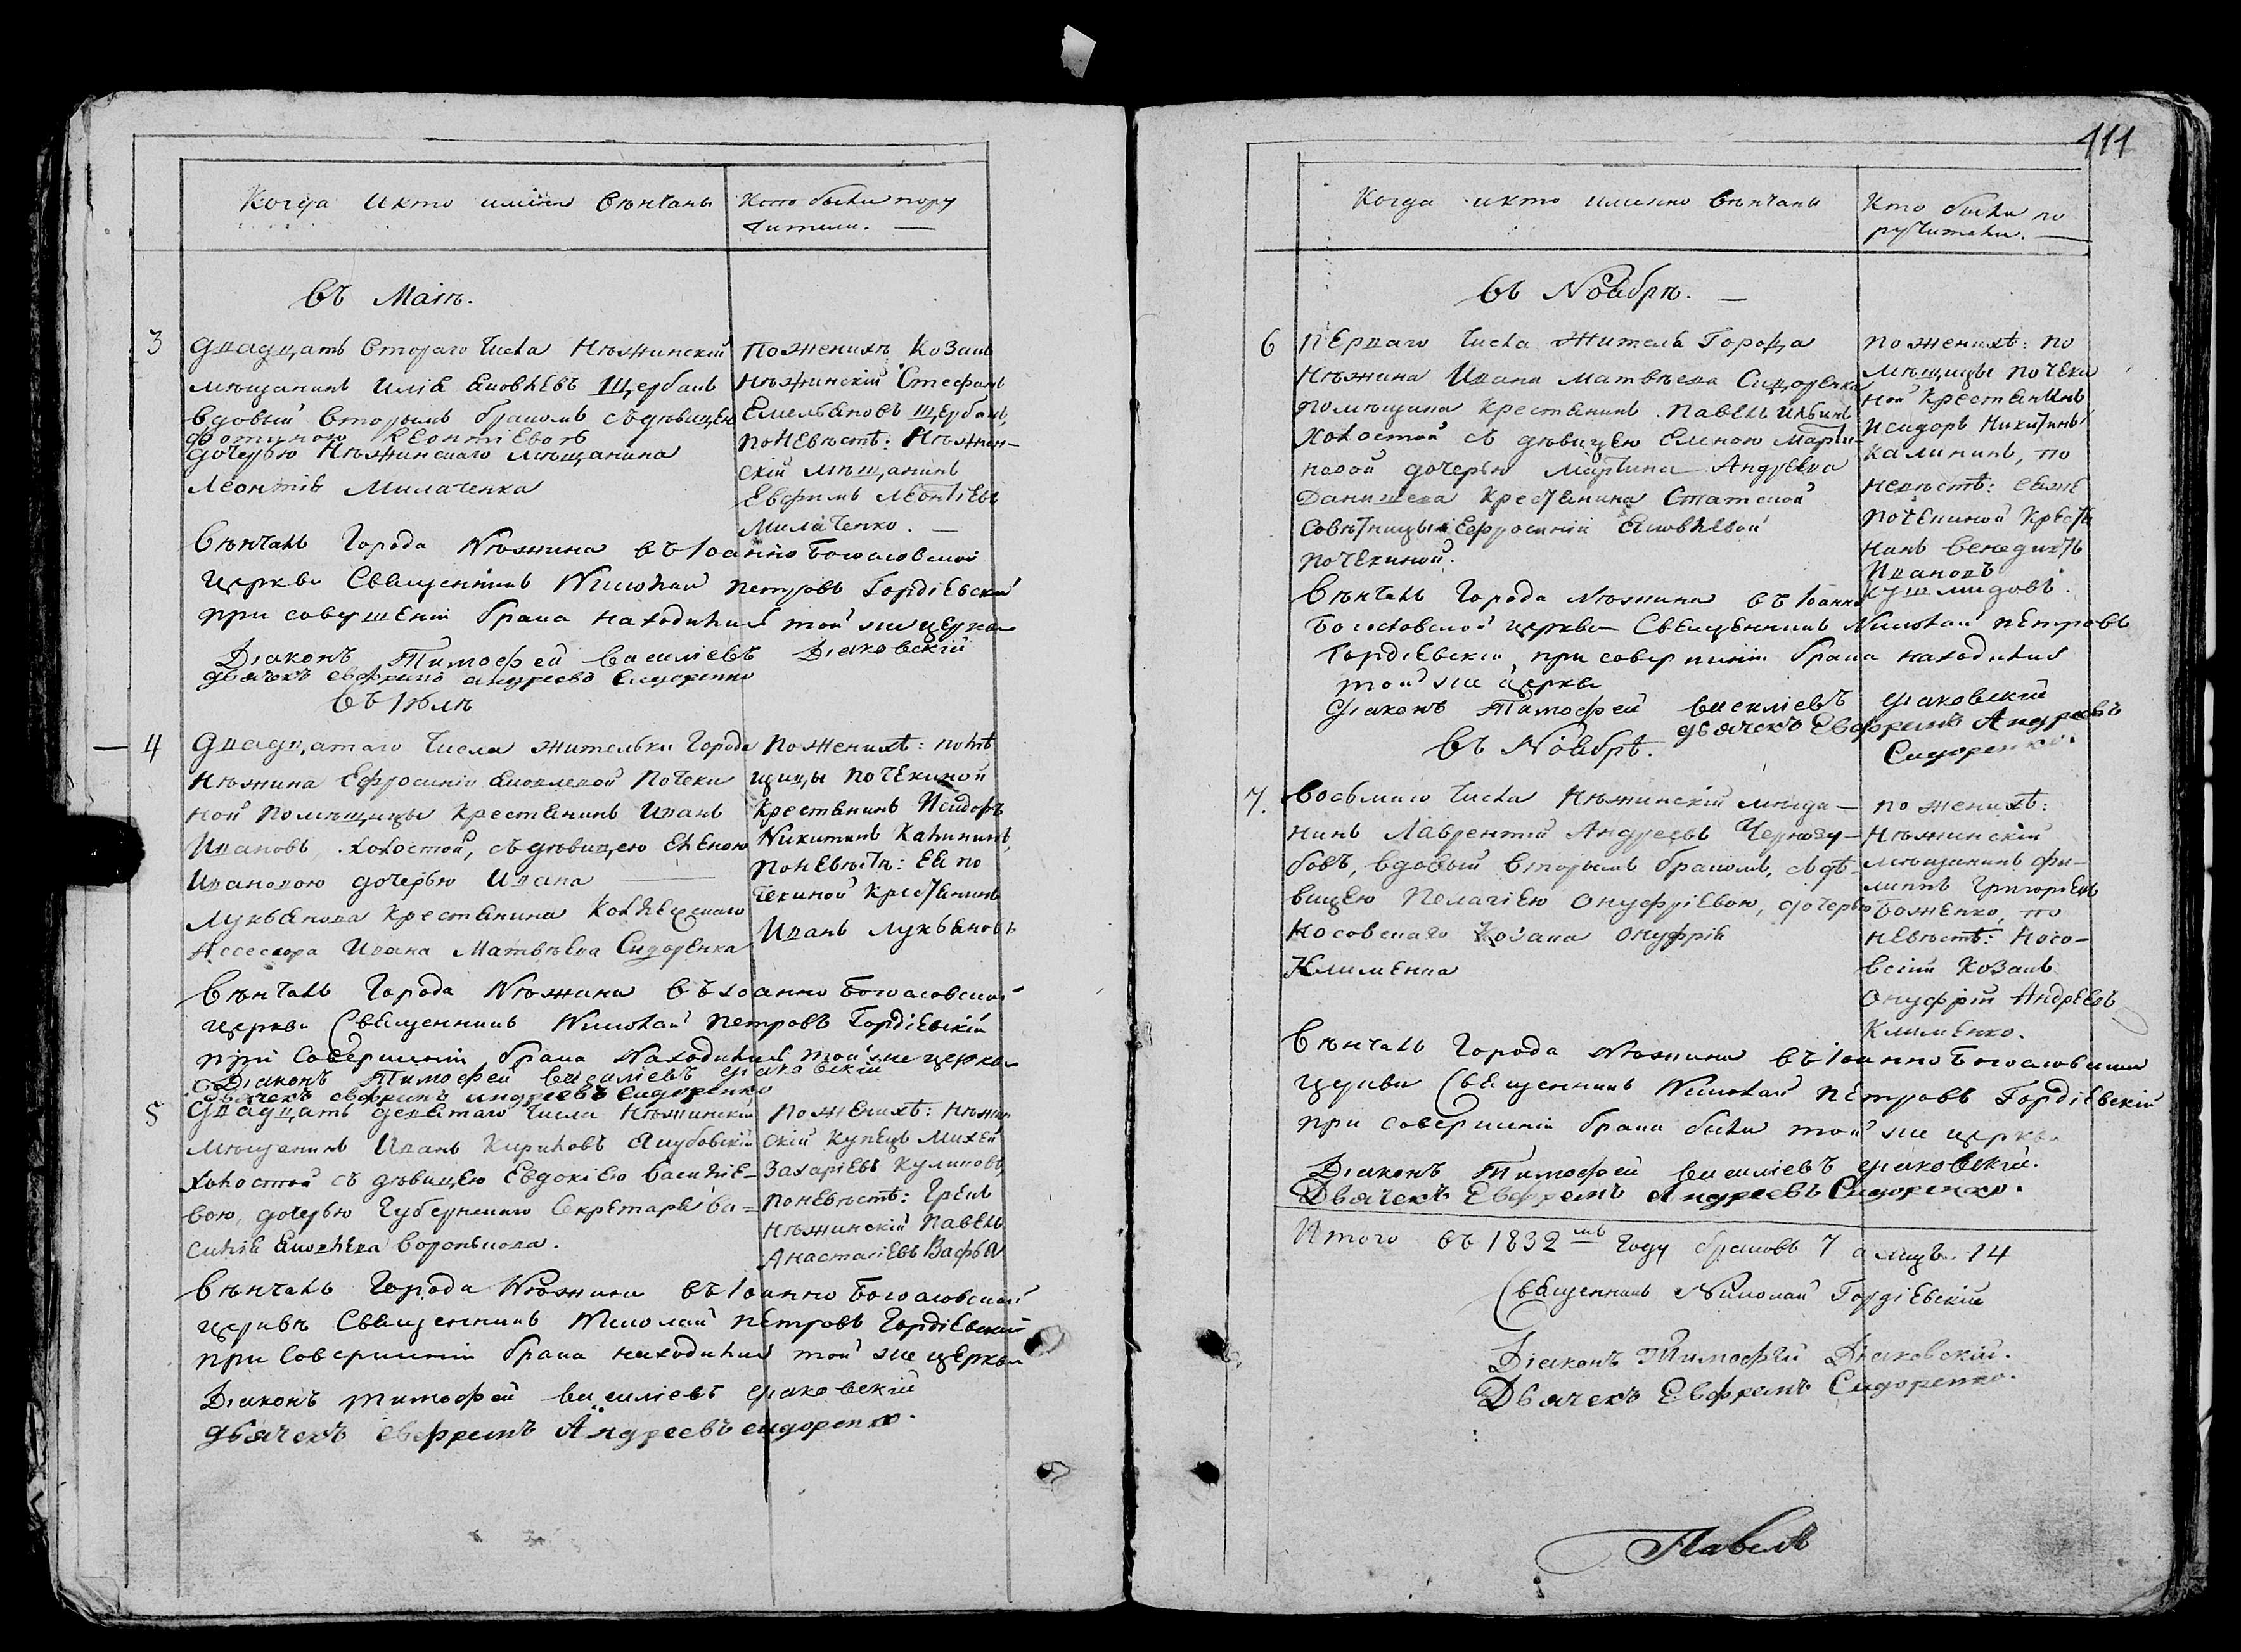 Когда икто имянно Вѣнчаны
Кто были пору
чители. —
въ Маіѣ.
3
Двадцать Втораго Числа Нѣжинскій
мѣщанинъ Илія Яковлевъ Щербакъ
вдовый вторымъ бракомъ съдѣвицею
Фотиною Леонтіевою
дочерью Нѣжинскаго мѣщанина
Леонтія Милаченка
По женихѣ: Козакъ
Нѣжинскій Стефанъ
Емельяновъ Щербакъ,
по невѣстѣ: Нѣжин-
скій мѣщанинъ
Евфимъ Леонтіевъ
Милаченко. —
Вѣнчалъ Города Нѣжина въ Іоанно Богословской
церкви Священникъ Николай Петровъ Гордіевскій
при совершеніи брака находились той же церкви
Діаконъ Тимофей Василіевъ Діаковскій
Дьячекъ Евфремъ Андреевъ Сидоренко
въ Іюлѣ
4
Двадцатаго Числа жительки Города
Нѣжина Ефросиніи Яковлевой Почеки
ной Помѣщицы Крестянинъ Иванъ
Ивановъ, холостой, съ дѣвицею Еленою
Ивановою дочерью Ивана
Лукьянова Крестянина Коллежскаго
Ассесора Ивана Матвѣева Сидоренка
По женихѣ: помѣ
щицы Почекиной
Крестянинъ Исидоръ
Никитинъ Калининъ,
по невѣстѣ: Ея по
чекиной Крестянинъ
Иванъ Лукьяновъ
Вѣнчалъ Города Нѣжина въ Іоанно Богословской
церкви Священникъ Николай Петровъ Гордіевскій
при Совершеніи брака Находились той же церкви
Діаконъ Тимофей Василіевъ Діаковскій
Дьячекъ Евфремъ Андреевъ Сидоренко
5
Двадцать девятаго Числа Нѣжинскій
мѣщанинъ Иванъ Кириловъ Якубовскій
холостой съ дѣвицею Евдокіею Василіе-
вою, дочерью Губернскаго Секретаря Ва=
силія Яковлева Воронькова.
По женихѣ: Нѣжин
скій Купецъ Михей
Захаріевъ Куликовъ,
по невѣстѣ: Грекъ
Нѣжинскій Павелъ
Анастасіевъ Вафья
Вѣнчалъ Города Нѣжина въ Іоанно Богословской
церквѣ Священникъ Николай Петровъ Гордіевскій
при Совершеніи брака находились той же церкви
Діаконъ Тимофей Василіевъ Діаковскій
Дьячекъ Евфремъ Андреевъ Сидоренко.
111
Когда икто именно вѣнчаны
Кто были по
ручители. —
въ Ноябрѣ. —
6
Перваго Числа Жителя Города
Нѣжина Ивана Матвѣева Сидоренка
помѣщика Крестянинъ Павелъ Ильинъ
Холостой съ дѣвицею Еленою Марти-
новой дочерью Мартина Андреева
Данишева Крестянина Статской
Совѣтницы Ефросиніи Яковлевой
Почекиной.
По женихѣ: По
мѣщицы Почеки
ной Крестянинъ
Исидоръ Никитинъ
Калининъ, по
невѣстѣ: Еяже
Почекиной Крестья
нинъ Бенедиктъ
Ивановъ
Вѣнчалъ Города Нѣжина въ Іоанно
Богословской церкви Священникъ Николай Петровъ
Гордіевскій, при совершеніи брака находились
той же церкви
Діаконъ Тимофей Василіевъ Діаковскій
Дьячекъ Евфремъ Андреевъ
Сидоренко.
въ Ноябрѣ.
7.
Восьмаго Числа Нѣжинскій мѣща-
нинъ Лаврентій Андреевъ Чернозу-
бовъ, вдовый вторымъ бракомъ, съ дѣ-
вицею Пелагіею Онуфріевою, дочерью
Носовскаго Козака Онуфрія
Клименка
по женихѣ:
Нѣжинскій
мѣщанинъ Фи-
липпъ Григоріевъ
Боженко, по
невѣстѣ: Носо-
вскій Козакъ
Онуфрій Андреевъ
Клименко.
Вѣнчалъ Города Нѣжина въ Іоанно Богословской
церкви Священникъ Николай Петровъ Гордіевскій
при совершеніи брака были той же церкви
Діаконъ Тимофей Василіевъ Діаковскій.
Дьячекъ Евфремъ Андреевъ Сидоренко.
Итого въ 1832мъ Году браковъ 7 а лицъ. 14
Священникъ Николай Гордіевскій
Діаконъ Тимофей Діаковскій.
Дьячекъ Евфремъ Сидоренко.
Павелъ